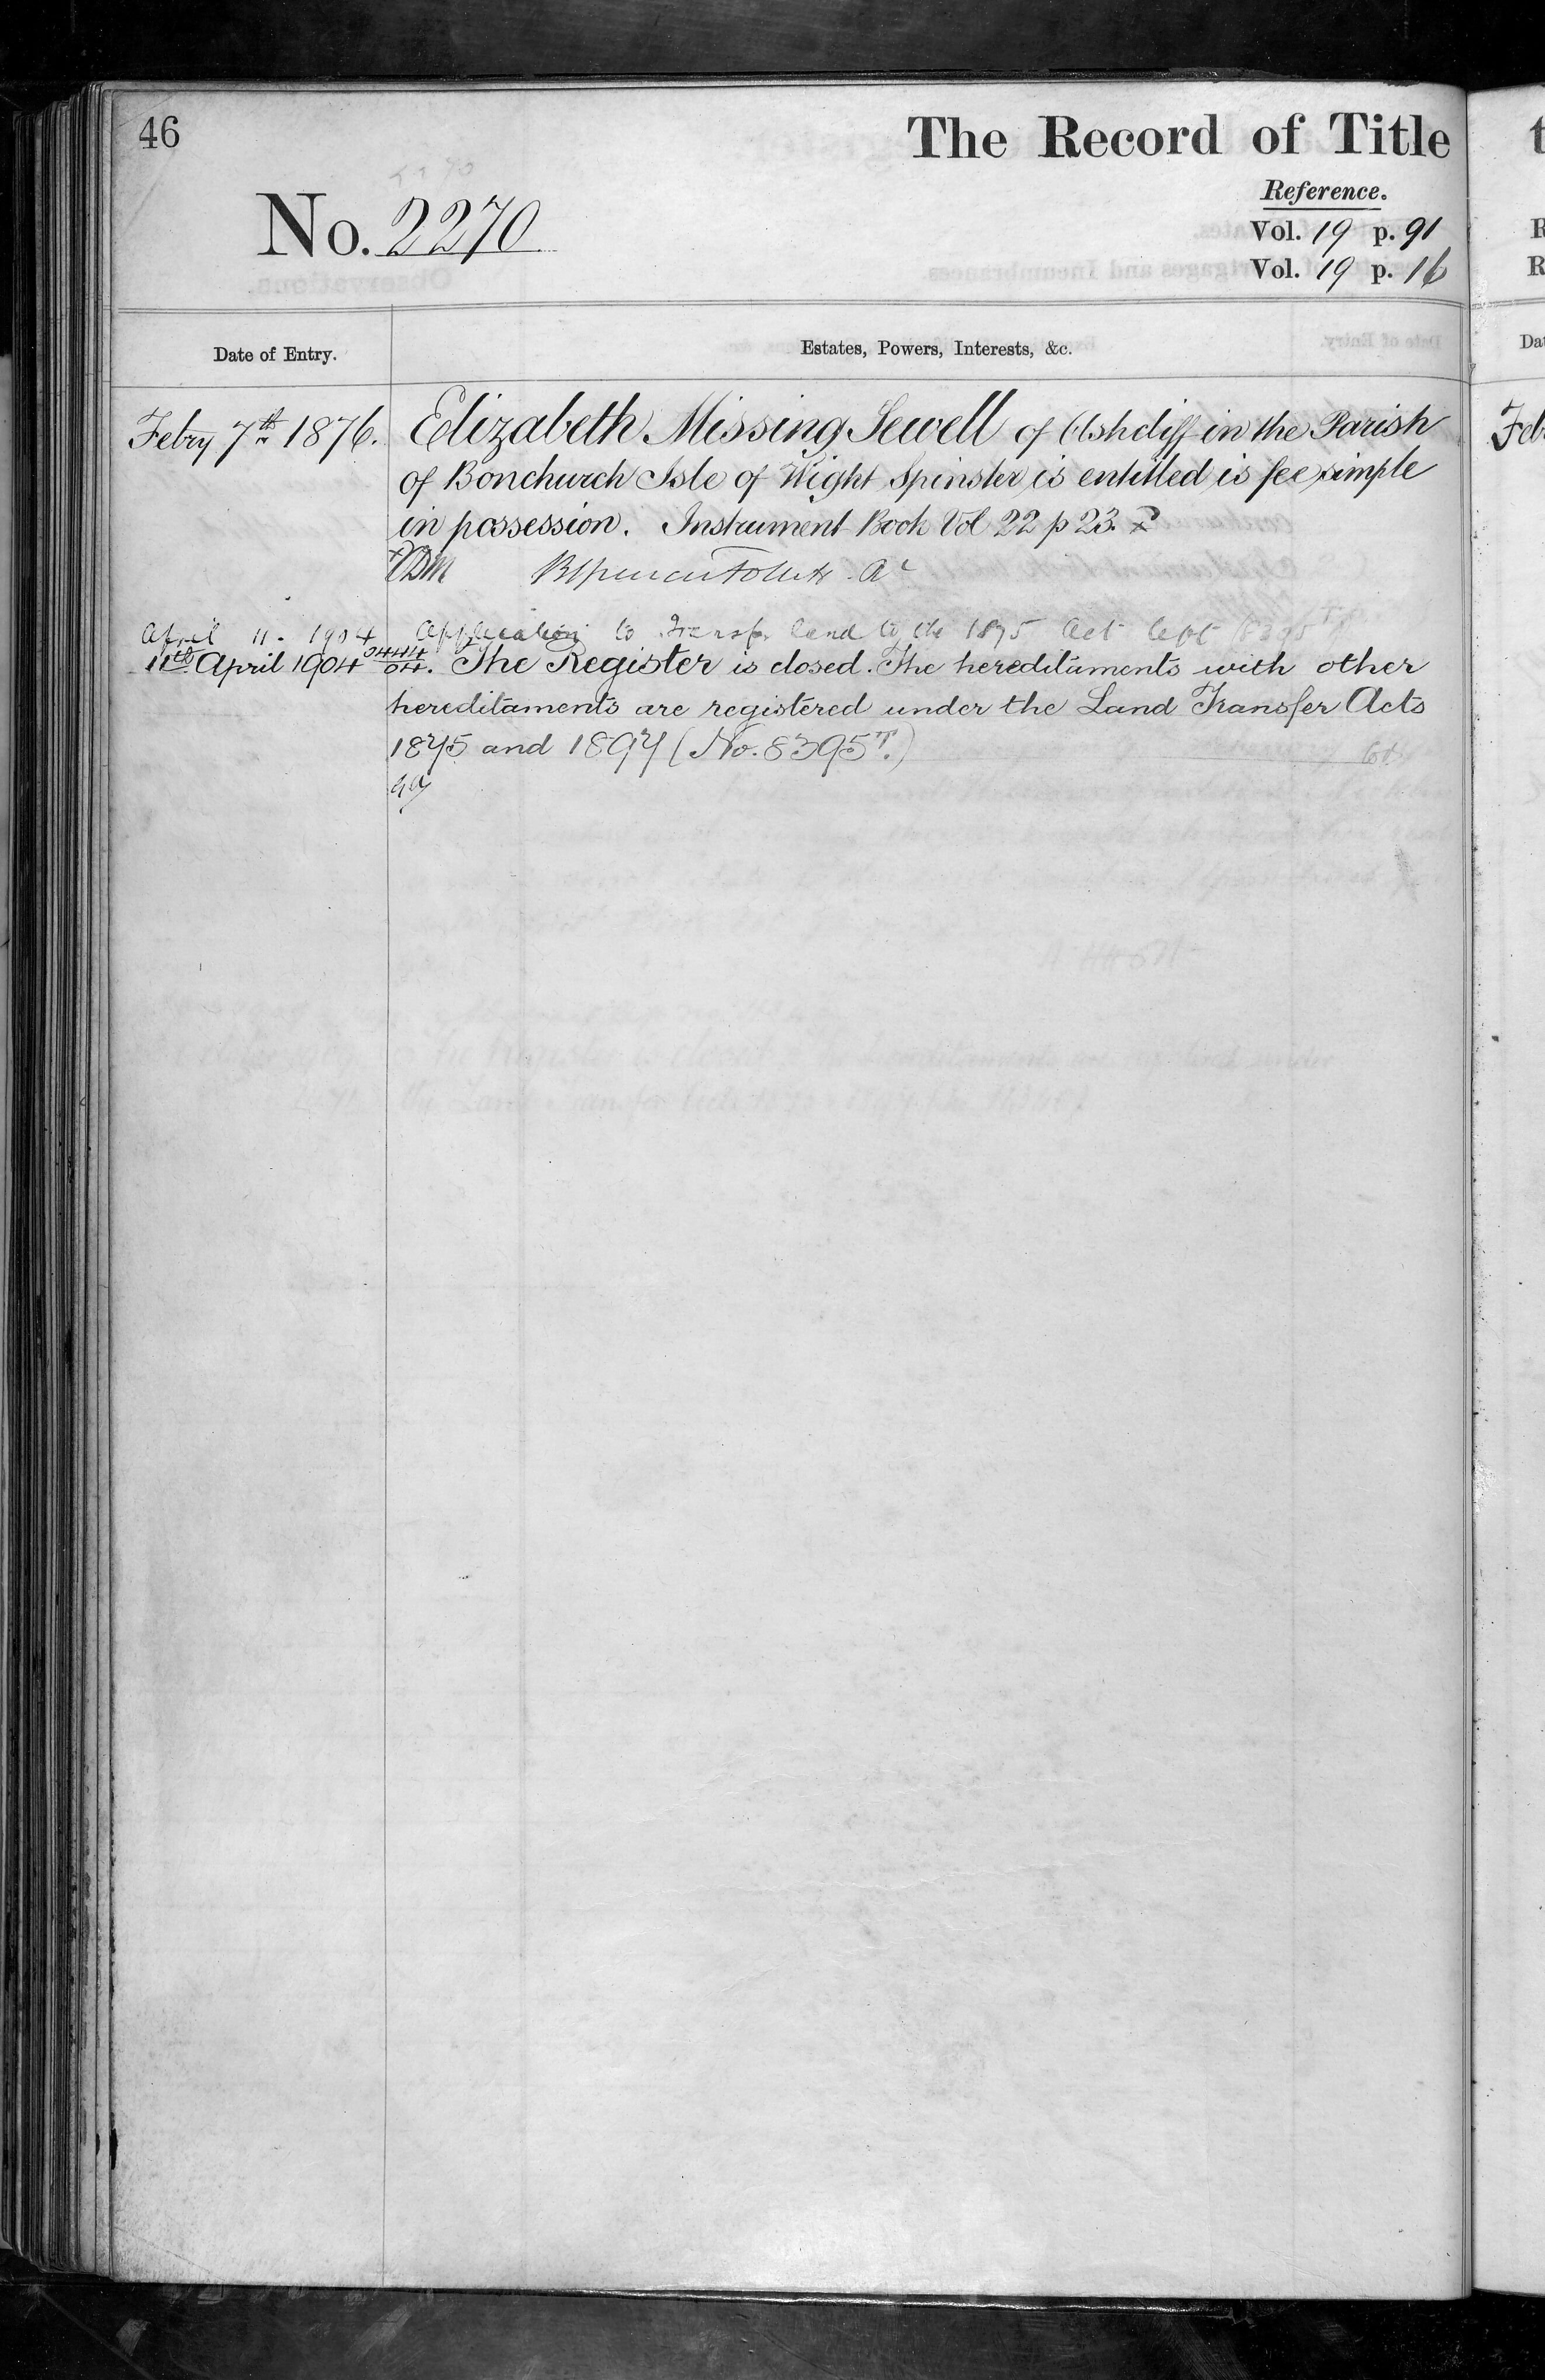 46
The Record of Title
Reference.
No. 2270
Vol. 19 p. 91
Vol. 19 p. 16
Date of Entry.
Estates, Powers, Interests, &c.
Febry 7th 1876. Elizabeth Missing Sewell of Ashcliff in the Parish
of Bonchurch Isle of Wight Spinster is entitled is fee simple
in possession. Instrument Book Vol 22 p 23.
April 11. 1904 Application to Transfr land to the 1875 Act left 8395 T
11th April 1904 The Register is closed. The hereditaments with other
hereditaments are registered under the Land Transfer Acts
1875 and 1897 (No. 8395T.)